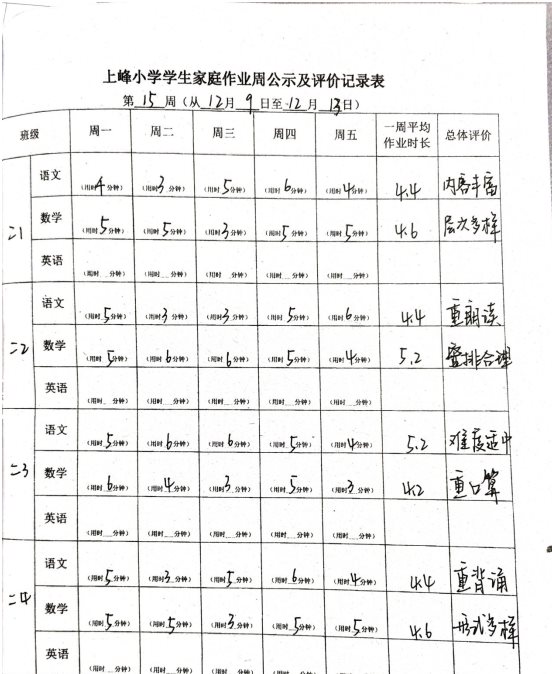 上峰小学学生家庭作业周公示及评价记录表
第15周（从12月9日至12月13日）
班级 周一 周二 周三 周四 周五 一周平均作业时长 总体评价
二1 语文 （用时4分钟） （用时3分钟） （用时5分钟） （用时6分钟） （用时4分钟） 4.4 内容丰富
数学 （用时5分钟） （用时5分钟） （用时3分钟） （用时5分钟） （用时5分钟） 4.6 层次多样
英语 （用时 分钟） （用时 分钟） （用时 分钟） （用时 分钟） （用时 分钟）
二2 语文 （用时5分钟） （用时3分钟） （用时3分钟） （用时5分钟） （用时6分钟） 4.4 重朗读
数学 （用时5分钟） （用时6分钟） （用时6分钟） （用时5分钟） （用时4分钟） 5.2 安排合理
英语 （用时 分钟） （用时 分钟） （用时 分钟） （用时 分钟） （用时 分钟）
二3 语文 （用时5分钟） （用时6分钟） （用时6分钟） （用时5分钟） （用时4分钟） 5.2 难度适中
数学 （用时6分钟） （用时4分钟） （用时3分钟） （用时5分钟） （用时3分钟） 4.2 重口算
英语 （用时 分钟） （用时 分钟） （用时 分钟） （用时 分钟） （用时 分钟）
二4 语文 （用时5分钟） （用时3分钟） （用时5分钟） （用时6分钟） （用时4分钟） 4.4 重背诵
数学 （用时5分钟） （用时5分钟） （用时3分钟） （用时5分钟） （用时5分钟） 4.6 形式多样
英语 （用时 分钟） （用时 分钟） （用时 分钟） （用时 分钟） （用时 分钟）